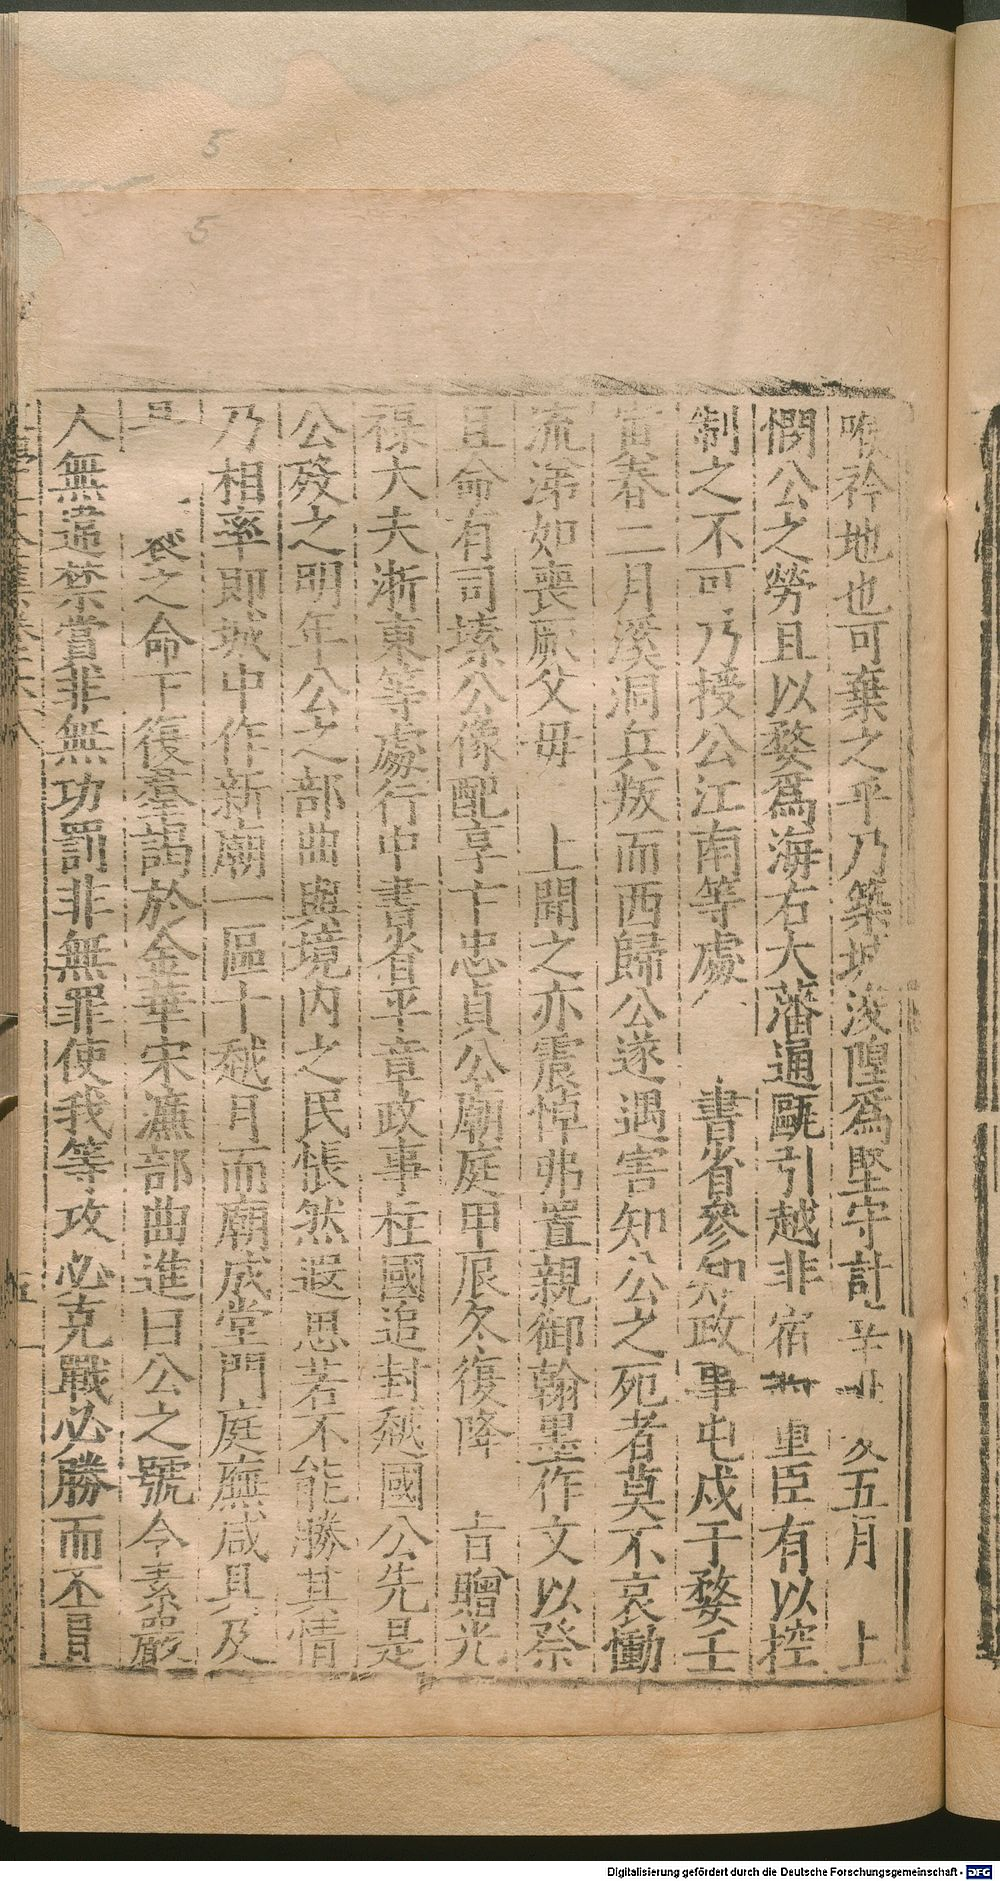 喉衿地也可棄之乎乃築城浚隍為堅守計辛丑夏五月 上
憫公之勞且以婺爲海右大藩通甌引越非宿 重臣有以控
制之不可乃授公江南等處 書省參知政事屯戍于婺壬
寅春二月溪洞兵叛而西歸公遂遇害知公之死者莫不哀慟
流涕如喪厥父毋 上聞之亦震悼弗置親御翰墨作文以祭
且命有司塐公像配享卞忠貞公廟庭甲辰冬復降 㫖贈光
祿大夫浙東等處行中書省平章政事柱國追封越國公先是
公歿之明年公之部曲與境内之民悵然遐思若不能勝其情
乃相率即城中作新廟一區十越月而廟成堂門庭廡咸具及
之命下復羣謁於金華宋濂部曲進曰公之號令素嚴
人無違禁賞非無功罰非無罪使我等攻必克戰必勝而不
5
5
Digitalisierung gefördert durch die Deutsche Forschungsgemeinschaft - DFG